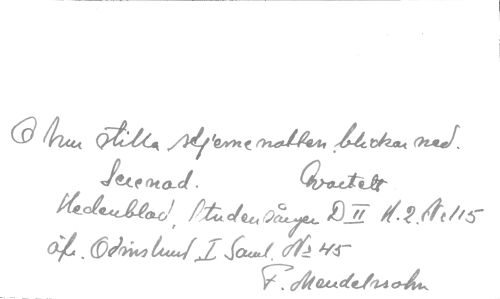 O hur stilla stjernenatten blickar ned.
Serenad. Qvartett
Hedenblad, Studentsången D II H. 2. No 115
äfv. Odinslund, I Saml. No 45
F. Mendelssohn